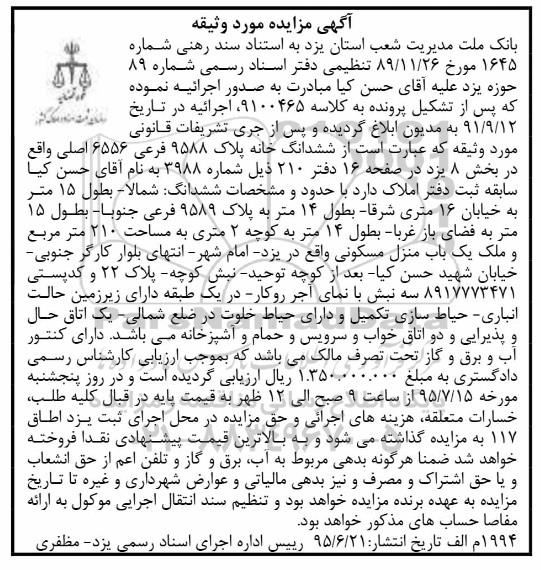 آگهی مزایده مورد وثیقه
بانک ملت مدیریت شعب استان یزد به استناد سند رهنی شماره
۱۶۴۵ مورخ ۸۹/۱۱/۲۶ تنظیمی دفتر اسناد رسمی شماره ۸۹
حوزه یزد علیه آقای حسن کیا مبادرت به صدور اجرائیه نموده
که پس از تشکیل پرونده به کلاسه ۹۱۰۰۴۶۵، اجرائیه در تاریخ
۹۱/۹/۱۲ به مدیون ابلاغ گردیده و پس از جری تشریفات قانونی
مورد وثیقه که عبارت است از ششدانگ خانه پلاک ۹۵۸۸ فرعی ۶۵۵۶ اصلی واقع
در بخش ۸ یزد در صفحه ۱۶ دفتر ۲۱۰ ذیل شماره ۳۹۸۸ به نام آقای حسن کیا
سابقه ثبت دفتر املاک دارد با حدود و مشخصات ششدانگ: شمالا- بطول ۱۵ متر
به خیابان ۱۶ متری شرقا- بطول ۱۴ متر به پلاک ۹۵۸۹ فرعی جنوبا- بطول ۱۵
متر به فضای باز غربا- بطول ۱۴ متر به کوچه ۲ متری به مساحت ۲۱۰ متر مربع
و ملک یک باب منزل مسکونی واقع در یزد- امام شهر- انتهای بلوار کارگر جنوبی-
خیابان شهید حسن کیا- بعد از کوچه توحید- نبش کوچه- پلاک ۲۲ و کدپستی
۸۹۱۷۷۷۳۴۷۱ سه نبش با نمای آجر روکار- در یک طبقه دارای زیرزمین حالت
انباری- حیاط سازی تکمیل و دارای حیاط خلوت در ضلع شمالی- یک اتاق حال
و پذیرایی و دو اتاق خواب و سرویس و حمام و آشپزخانه می باشد. دارای کنتور
آب و برق و گاز تحت تصرف مالک می باشد که بموجب ارزیابی کارشناس رسمی
دادگستری به مبلغ ۱.۳۵۰.۰۰۰.۰۰۰ ریال ارزیابی گردیده است و در روز پنجشنبه
مورخه ۹۵/۷/۱۵ از ساعت ۹ صبح الی ۱۲ ظهر به قیمت پایه در قبال کلیه طلب،
خسارات متعلقه، هزینه های اجرائی و حق مزایده در محل اجرای ثبت یزد اطاق
۱۱۷ به مزایده گذاشته می شود و به بالاترین قیمت پیشنهادی نقدا فروخته
خواهد شد ضمنا هرگونه بدهی مربوط به آب، برق و گاز و تلفن اعم از حق انشعاب
و یا حق اشتراک و مصرف و نیز بدهی مالیاتی و عوارض شهرداری و غیره تا تاریخ
مزایده به عهده برنده مزایده خواهد بود و تنظیم سند انتقال اجرایی موکول به ارائه
مفاصا حساب های مذکور خواهد بود.
۱۹۹۴م الف تاریخ انتشار: ۹۵/۶/۲۱ رییس اداره اجرای اسناد رسمی یزد- مظفری